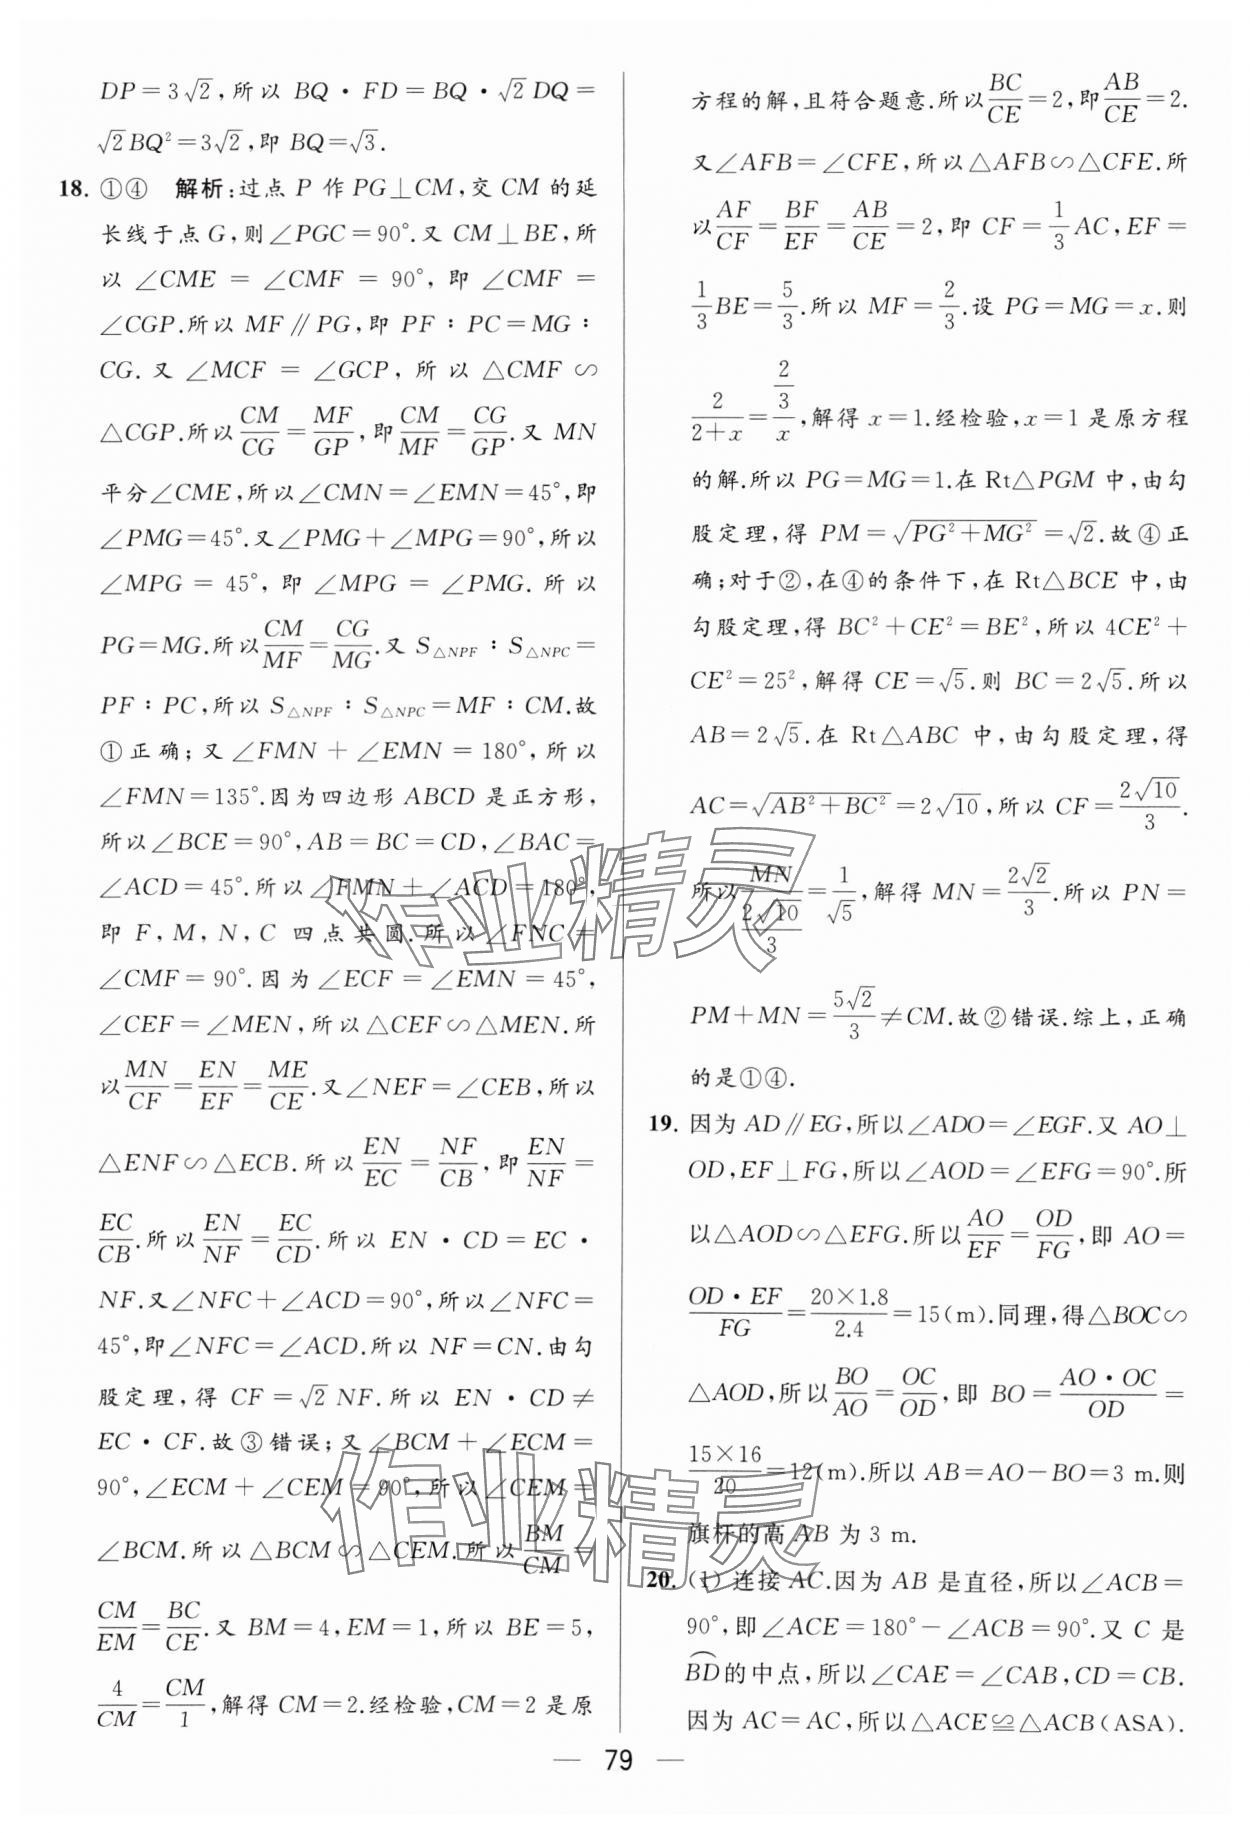 DP=3√2,所以 BQ·FD=BQ·√2DQ=
√2BQ²=3√2,即 BQ=√3.
18. ①④ 解析:过点 P 作 PG⊥CM,交 CM 的延
长线于点 G,则∠PGC=90°.又 CM⊥BE,所
以 ∠CME = ∠CMF = 90°,即 ∠CMF =
∠CGP.所以 MF∥PG,即 PF∶PC=MG∶
CG.又 ∠MCF = ∠GCP,所以 △CMF ∽
△CGP.所以CM/CG=MF/GP,即CM/MF=CG/GP.又 MN
平分∠CME,所以∠CMN=∠EMN=45°,即
∠PMG=45°.又∠PMG+∠MPG=90°,所以
∠MPG = 45°,即 ∠MPG = ∠PMG.所以
PG=MG.所以CM/MF=CG/MG.又 S△NPF∶S△NPC=
PF∶PC,所以 S△NPF∶S△NPC=MF∶CM.故
①正确;又 ∠FMN + ∠EMN = 180°,所以
∠FMN=135°.因为四边形 ABCD 是正方形,
所以∠BCE=90°,AB=BC=CD,∠BAC=
∠ACD=45°.所以∠FMN+∠ACD=180°,
即 F,M,N,C 四点共圆.所以∠FNC=
∠CMF=90°.因为∠ECF=∠EMN=45°,
∠CEF=∠MEN,所以△CEF∽△MEN.所
以MN/CF=EN/EF=ME/CE.又∠NEF=∠CEB,所以
△ENF∽△ECB.所以EN/EC=NF/CB,即EN/NF=
EC/CB.所以EN/NF=EC/CD.所以 EN·CD=EC·
NF.又∠NFC+∠ACD=90°,所以∠NFC=
45°,即∠NFC=∠ACD.所以 NF=CN.由勾
股定理,得 CF=√2NF.所以 EN·CD≠
EC·CF.故③错误;又∠BCM+∠ECM=
90°,∠ECM+∠CEM=90°,所以∠CEM=
∠BCM.所以△BCM∽△CEM.所以BM/CM=
CM/EM=BC/CE.又 BM=4,EM=1,所以 BE=5,
4/CM=CM/1,解得 CM=2.经检验,CM=2 是原
方程的解,且符合题意.所以BC/CE=2,即AB/CE=2.
又∠AFB=∠CFE,所以△AFB∽△CFE.所
以AF/CF=BF/EF=AB/CE=2,即 CF=1/3AC,EF=
1/3BE=5/3.所以 MF=2/3.设 PG=MG=x.则
2/(2+x)=(2/3)/x,解得 x=1.经检验,x=1 是原方程
的解.所以 PG=MG=1.在 Rt△PGM 中,由勾
股定理,得 PM=√(PG²+MG²)=√2.故④正
确;对于②,在④的条件下,在 Rt△BCE 中,由
勾股定理,得 BC²+CE²=BE²,所以 4CE²+
CE²=25²,解得 CE=√5.则 BC=2√5.所以
AB=2√5.在 Rt△ABC 中,由勾股定理,得
AC=√(AB²+BC²)=2√10,所以 CF=2√10/3.
所以MN/(2√10/3)=1/√5,解得 MN=2√2/3.所以 PN=
PM+MN=5√2/3≠CM.故②错误.综上,正确
的是①④.
19. 因为 AD∥EG,所以∠ADO=∠EGF.又 AO⊥
OD,EF⊥FG,所以∠AOD=∠EFG=90°.所
以△AOD∽△EFG.所以AO/EF=OD/FG,即 AO=
OD·EF/FG=20×1.8/2.4=15(m).同理,得△BOC∽
△AOD,所以BO/AO=OC/OD,即 BO=AO·OC/OD=
15×16/20=12(m).所以 AB=AO-BO=3 m.则
旗杆的高 AB 为 3 m.
20. (1) 连接 AC.因为 AB 是直径,所以∠ACB=
90°,即∠ACE=180°-∠ACB=90°.又 C 是
⌒BD的中点,所以∠CAE=∠CAB,CD=CB.
因为 AC=AC,所以△ACE≌△ACB(ASA).
— 79 —
作业精灵
作业精灵